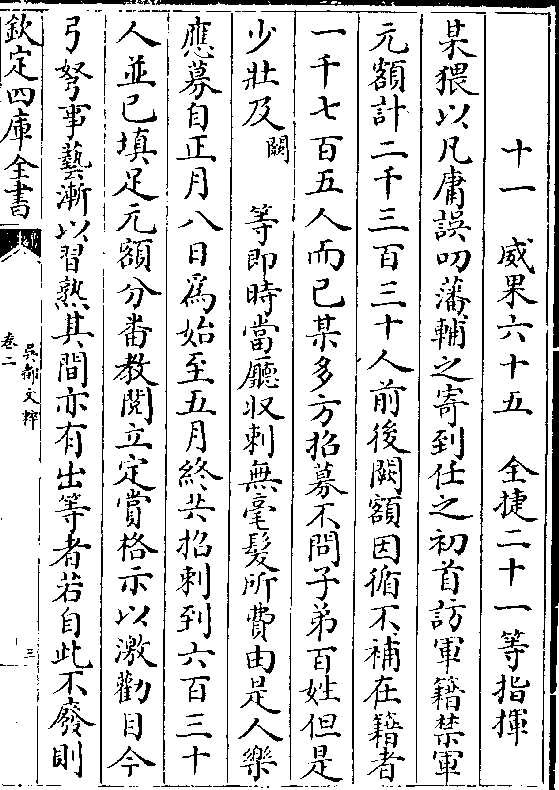 十一　威果六十五　全捷二十一等指揮
某猥以凡庸誤叨藩輔之寄到任之初首訪軍籍禁軍
元額計二千三百三十人前後闕額因循不補在籍者
一千七百五人而已某多方招募不問子弟百姓但是
少壯及闕　等即時當廳收刺無毫髮所費由是人樂
應募自正月八日爲始至五月終共招刺到六百三十
人並已填足元額分畨教閱立定賞格示以激勸目今
弓弩事藝漸以習熟其間亦有出等者若自此不廢則
欽定四庫全書
吳都文粹
卷二
三